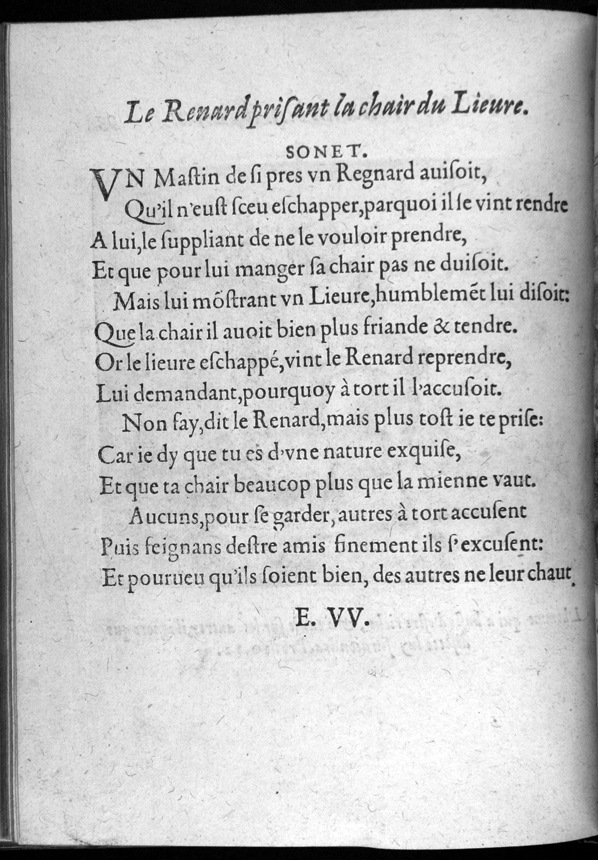 Le Renard priſant la chair du Lieure.
SONET.
VN Maſtin de ſi pres vn Regnard auiſoit,
Qu'il n'euſt ſceu eſchapper, parquoi il ſe vint rendre
A lui, le ſuppliant de ne le vouloir prendre,
Et que pour lui manger ſa chair pas ne duiſoit.
Mais lui mõſtrant vn Lieure, humblemẽt lui diſoit:
Que la chair il auoit bien plus friande & tendre.
Or le lieure eſchappé, vint le Renard reprendre,
Lui demandant, pourquoy à tort il l'accuſoit.
Non fay, dit le Renard, mais plus toſt ie te priſe:
Car ie dy que tu es d'vne nature exquiſe,
Et que ta chair beaucop plus que la mienne vaut.
Aucuns, pour ſe garder, autres à tort accuſent
Puis feignans deſtre amis finement ils ſ'excuſent:
Et pourueu qu'ils ſoient bien, des autres ne leur chaut.
E. VV.